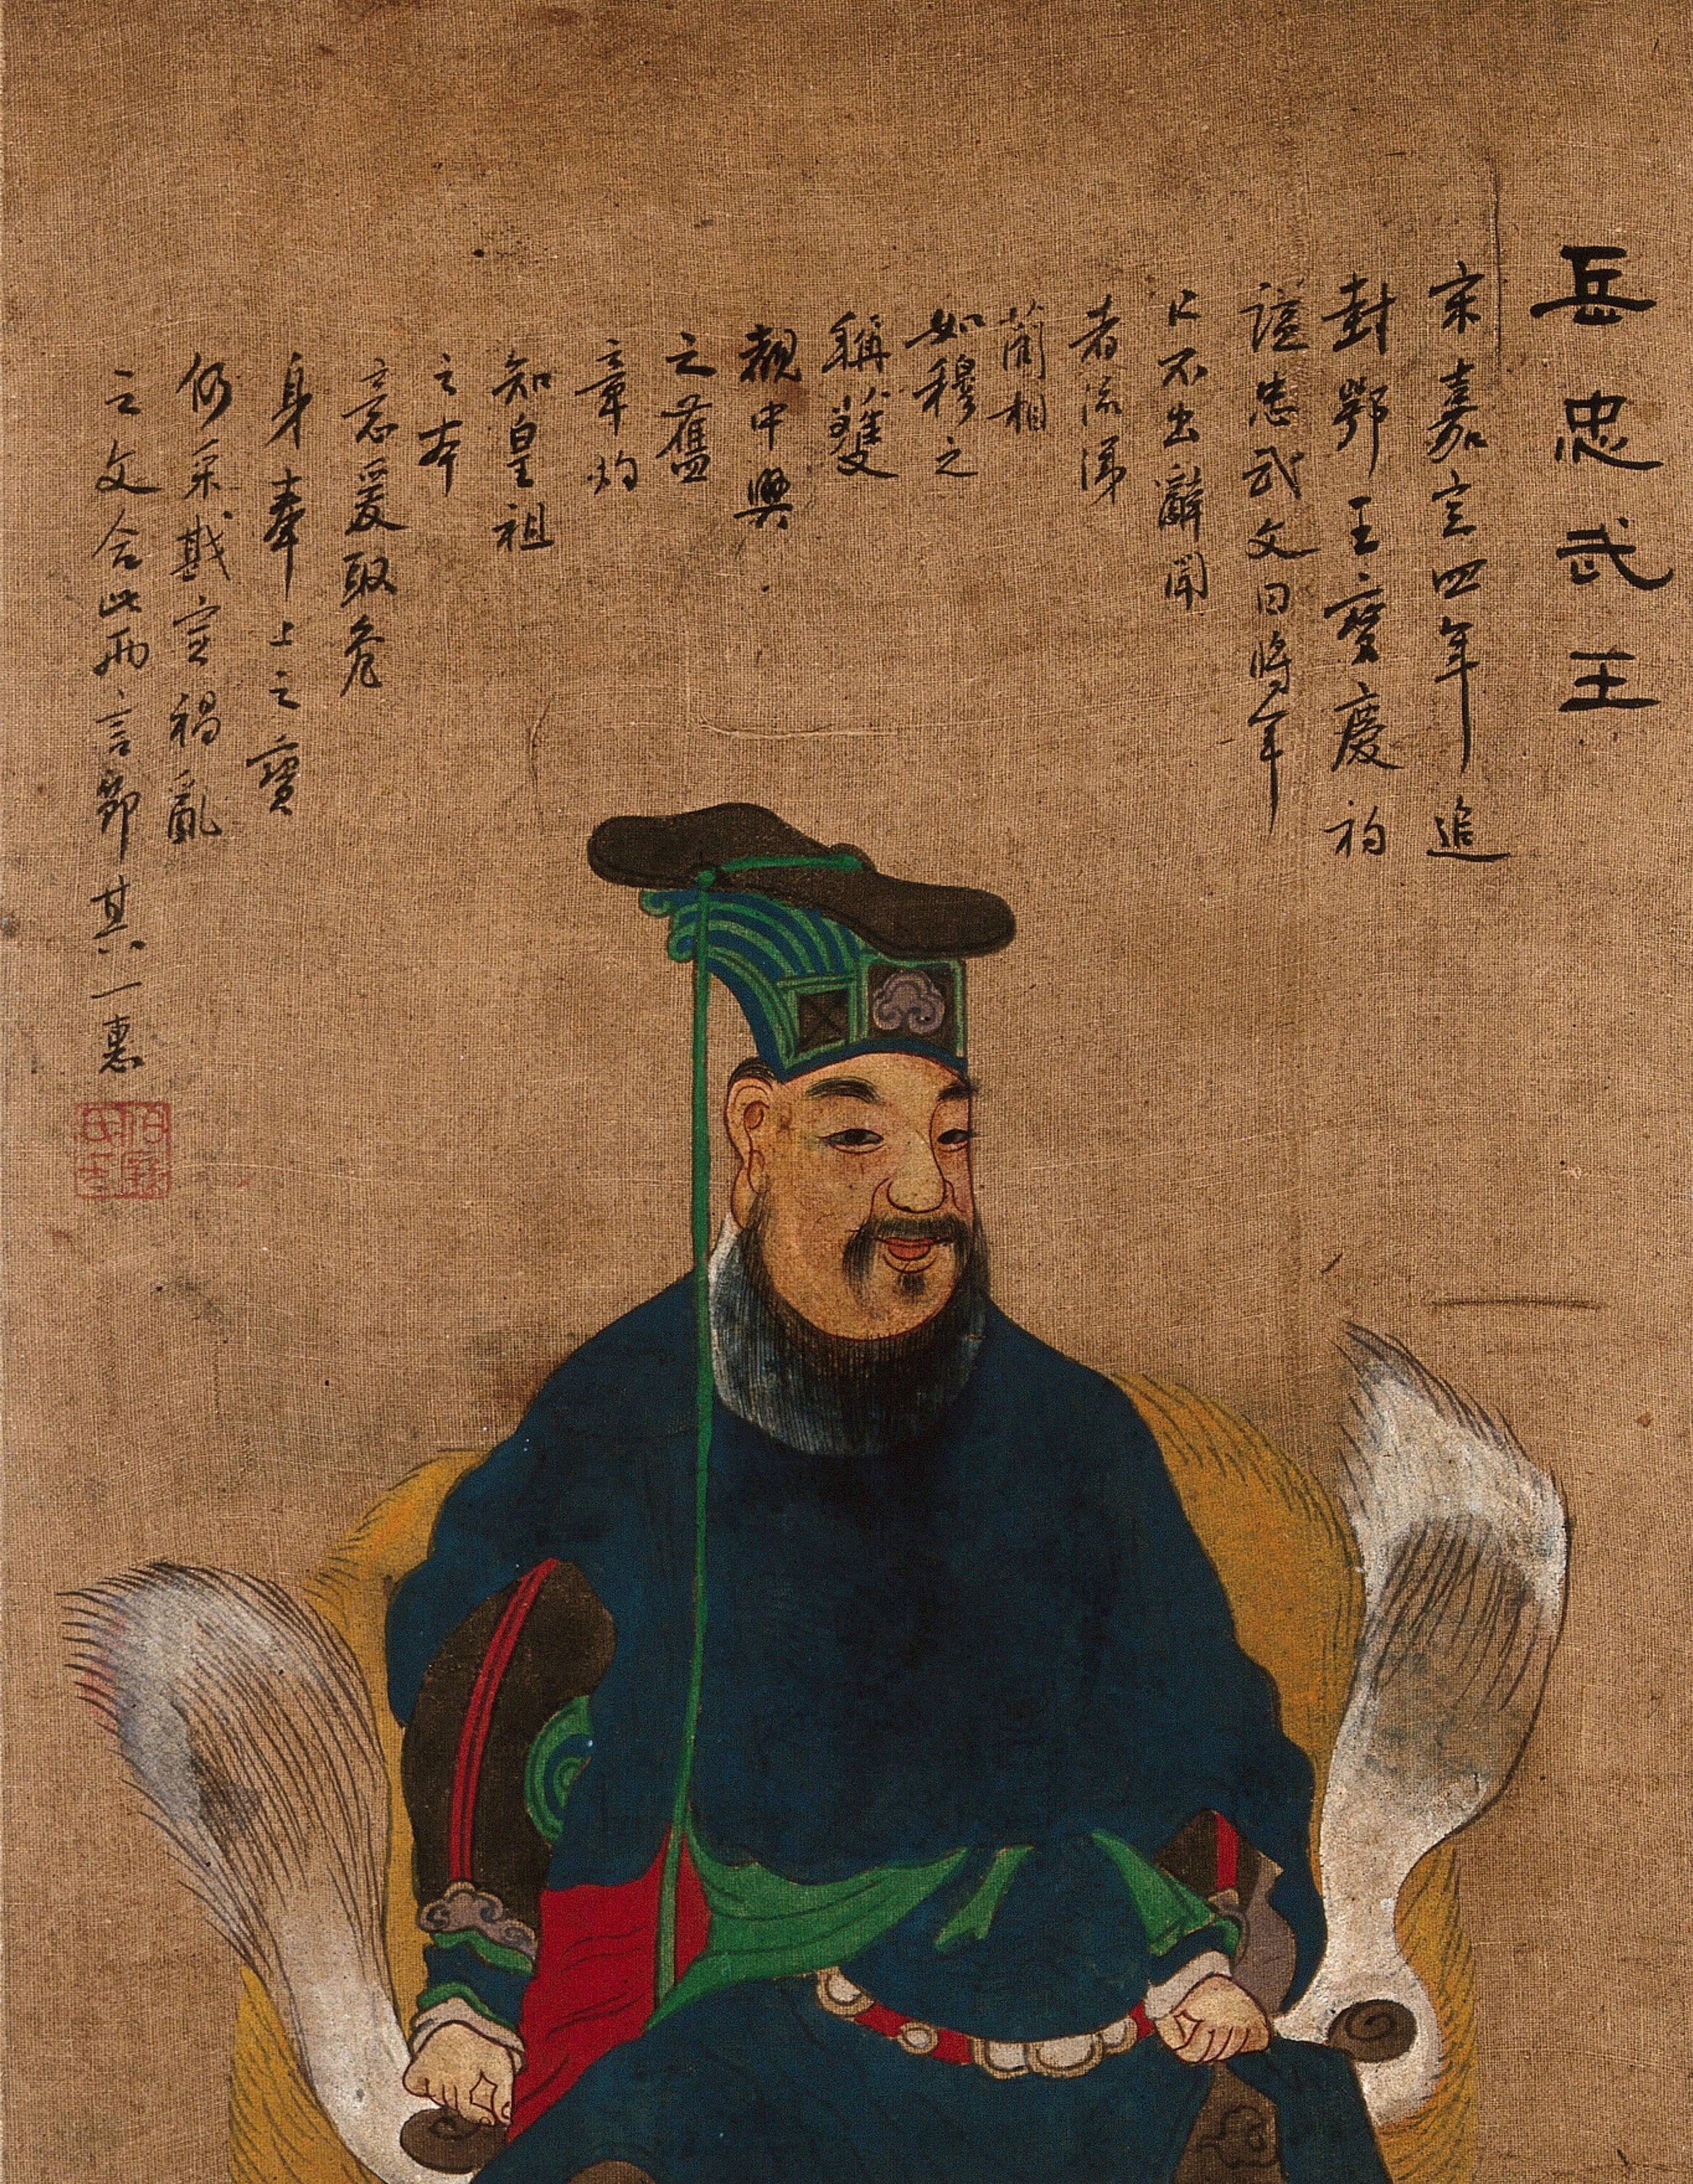 岳忠武王
宋嘉定四年追
封鄂王寶慶初
諡忠武文曰將軍
口不出辭聞
者流涕
藺相
如穆之
稱蒦
覩中興
之舊
章灼
知皇祖
之本
意爰取危
身奉上之實
仍采戡定禍亂
之文合此兩言節其一惠